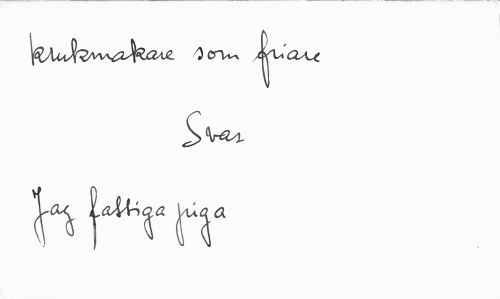 krukmakare som friare
Svar
Jag fattiga piga